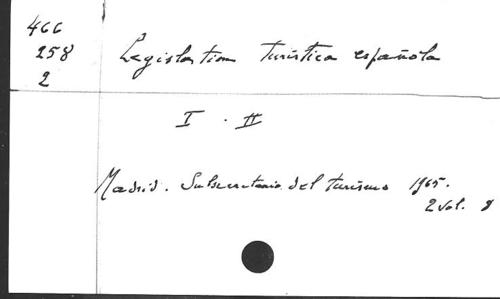 466
258
2
Legislation turistica española
I . II
Madrid. Subsecretaria del turismo 1965.
2 vol. 8